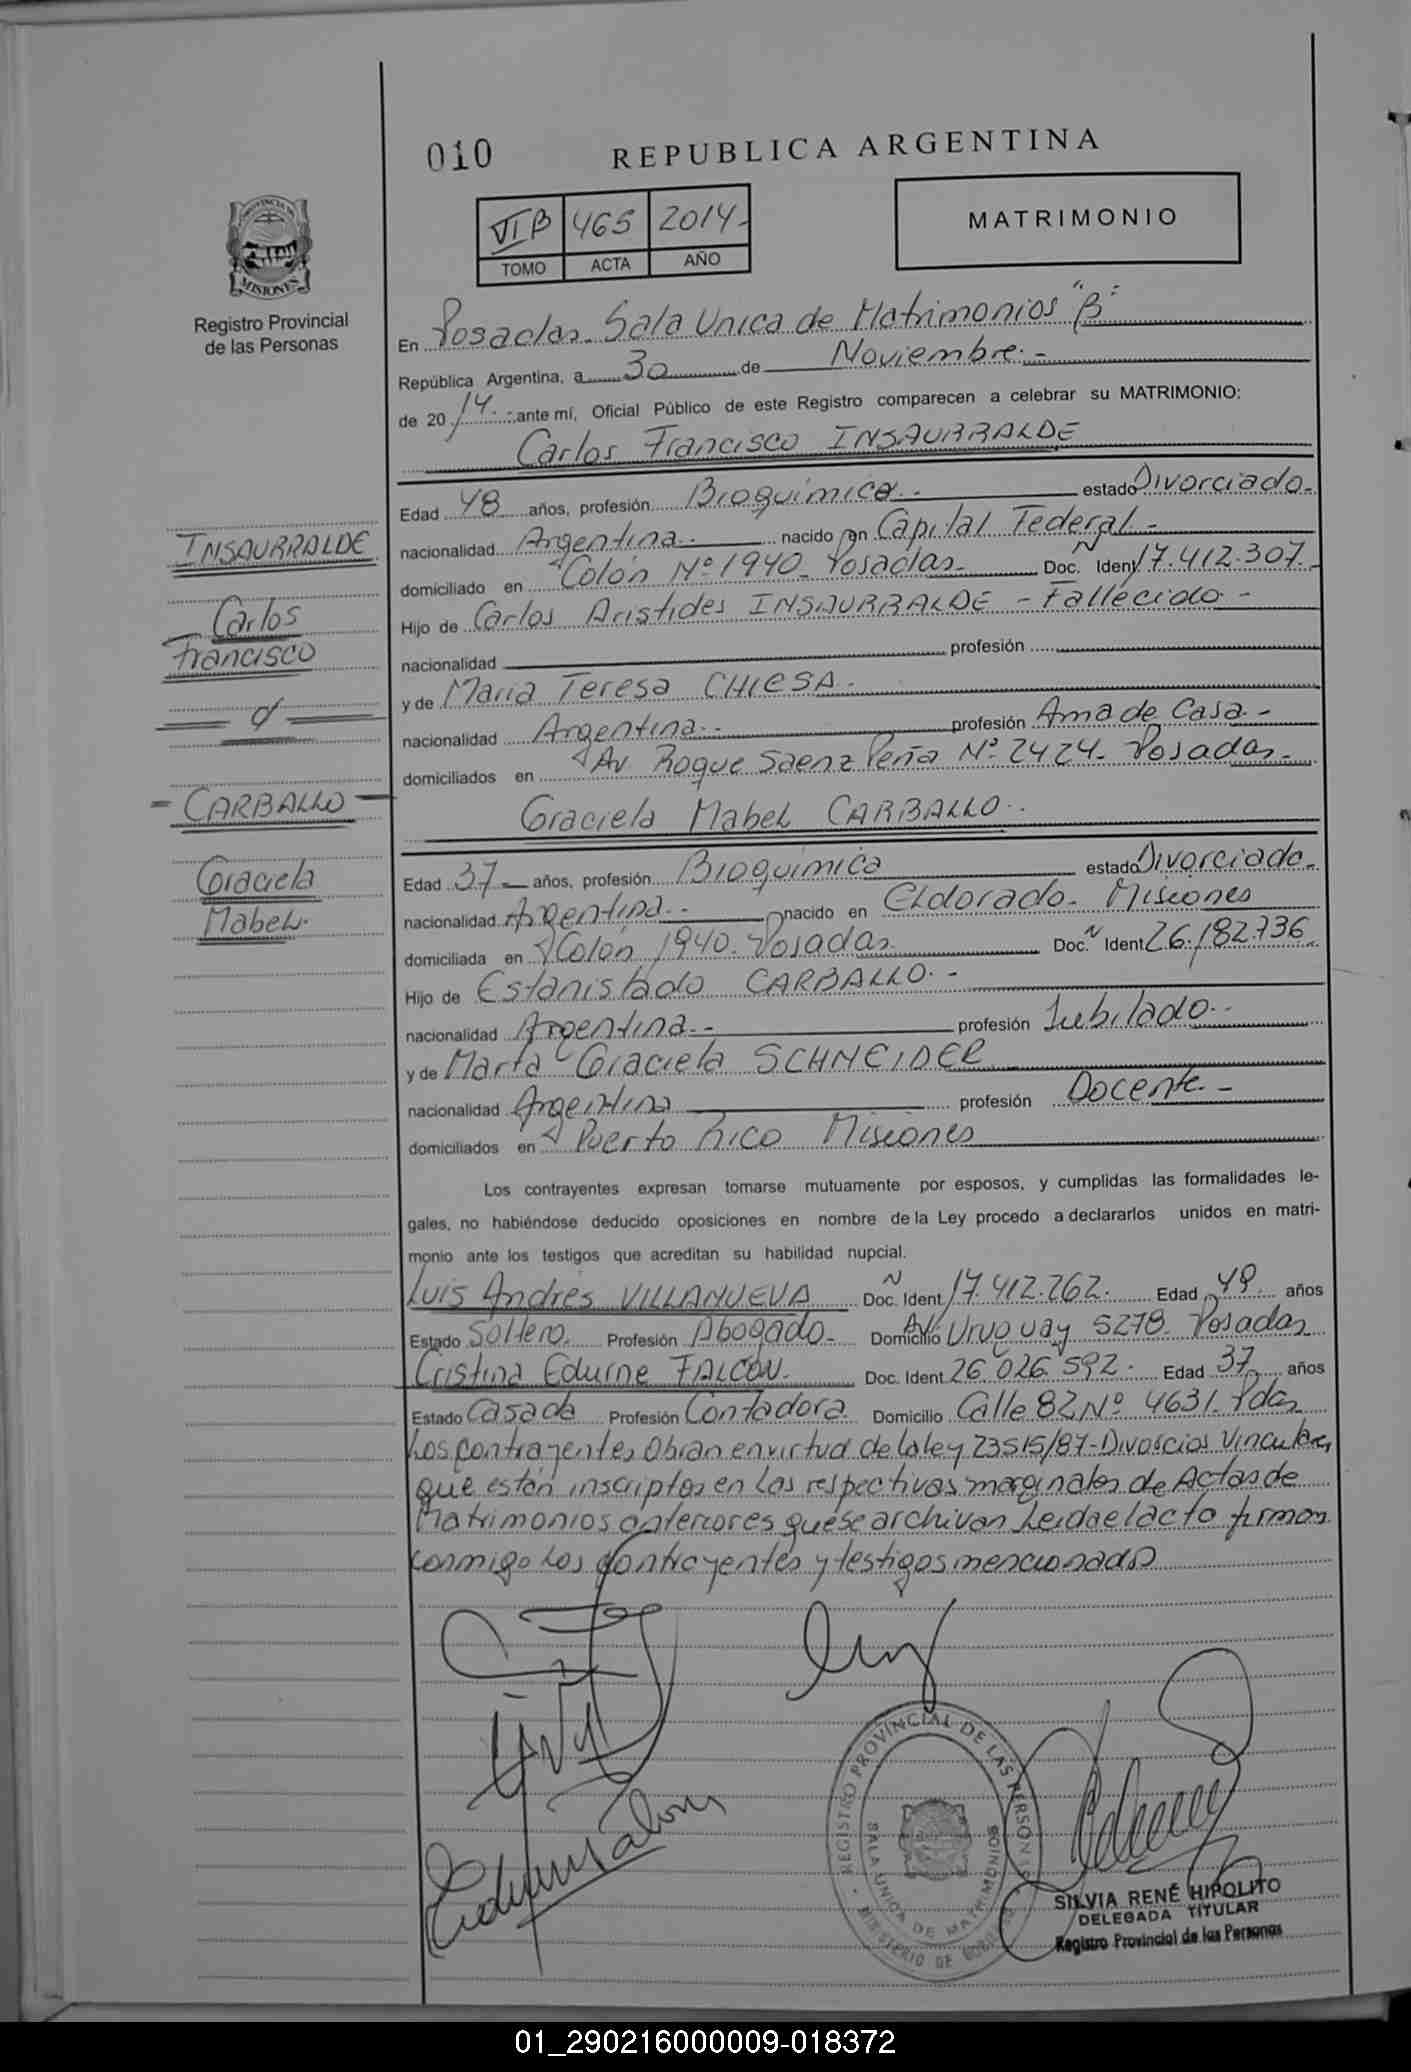 010
REPUBLICA ARGENTINA
VI B 465 2014-
TOMO ACTA AÑO
MATRIMONIO
PROVINCIA DE
MISIONES
Registro Provincial
de las Personas
En Posadas. Sala Unica de Matrimonios "B"
República Argentina, a 30 de Noviembre.-
de 2014.- ante mí, Oficial Público de este Registro comparecen a celebrar su MATRIMONIO:
Carlos Francisco INSAURRALDE
Edad 48 años, profesión Bioquímico.- estado Divorciado.-
nacionalidad Argentina.- nacido en Capital Federal.-
domiciliado en Colón Nº 1940. Posadas.- Doc. Ident 17.412.307.
Hijo de Carlos Aristides INSAURRALDE - Fallecido.-
nacionalidad profesión
y de María Teresa CHIESA.-
nacionalidad Argentina.- profesión Ama de Casa.-
domiciliados en Av Roque Saenz Peña Nº 2424- Posadas.-
Graciela Mabel CARBALLO.-
Edad 37- años, profesión Bioquímica estado Divorciada.-
nacionalidad Argentina.- nacido en Eldorado- Misiones
domiciliada en Colón 1940. Posadas. Doc. Ident 26.182.736
Hijo de Estanislado CARBALLO.-
nacionalidad Argentina.- profesión Jubilado.-
y de Marta Graciela SCHNEIDER
nacionalidad Argentina profesión Docente.-
domiciliados en Puerto Rico Misiones
INSAURRALDE
Carlos
Francisco
CARBALLO
Graciela
Mabel.
Los contrayentes expresan tomarse mutuamente por esposos, y cumplidas las formalidades le-
gales, no habiéndose deducido oposiciones en nombre de la Ley procedo a declararlos unidos en matri-
monio ante los testigos que acreditan su habilidad nupcial.
Luis Andrés VILLANUEVA Doc. Ident 17.412.262. Edad 49. años
Estado Soltero. Profesión Abogado.- Domicilio Av Uruguay 5278. Posadas
Cristina Edurne FALCON. Doc. Ident 26.026.592. Edad 37 años
Estado Casada Profesión Contadora. Domicilio Calle 82 Nº 4631. Pdas
Los contrayentes Obran en virtud de la ley 23515/87- Divorcios Vinculares
que están inscriptos en las respectivas marginales de Actas de
Matrimonios anteriores que se archivan Leida el acto firman
conmigo los contrayentes y testigos mencionados
REGISTRO PROVINCIAL DE LAS PERSONAS
SALA UNICA DE MATRIMONIOS
MINISTERIO DE GOBIERNO
SILVIA RENÉ HIPOLITO
DELEGADA TITULAR
Registro Provincial de las Personas
01_290216000009-018372